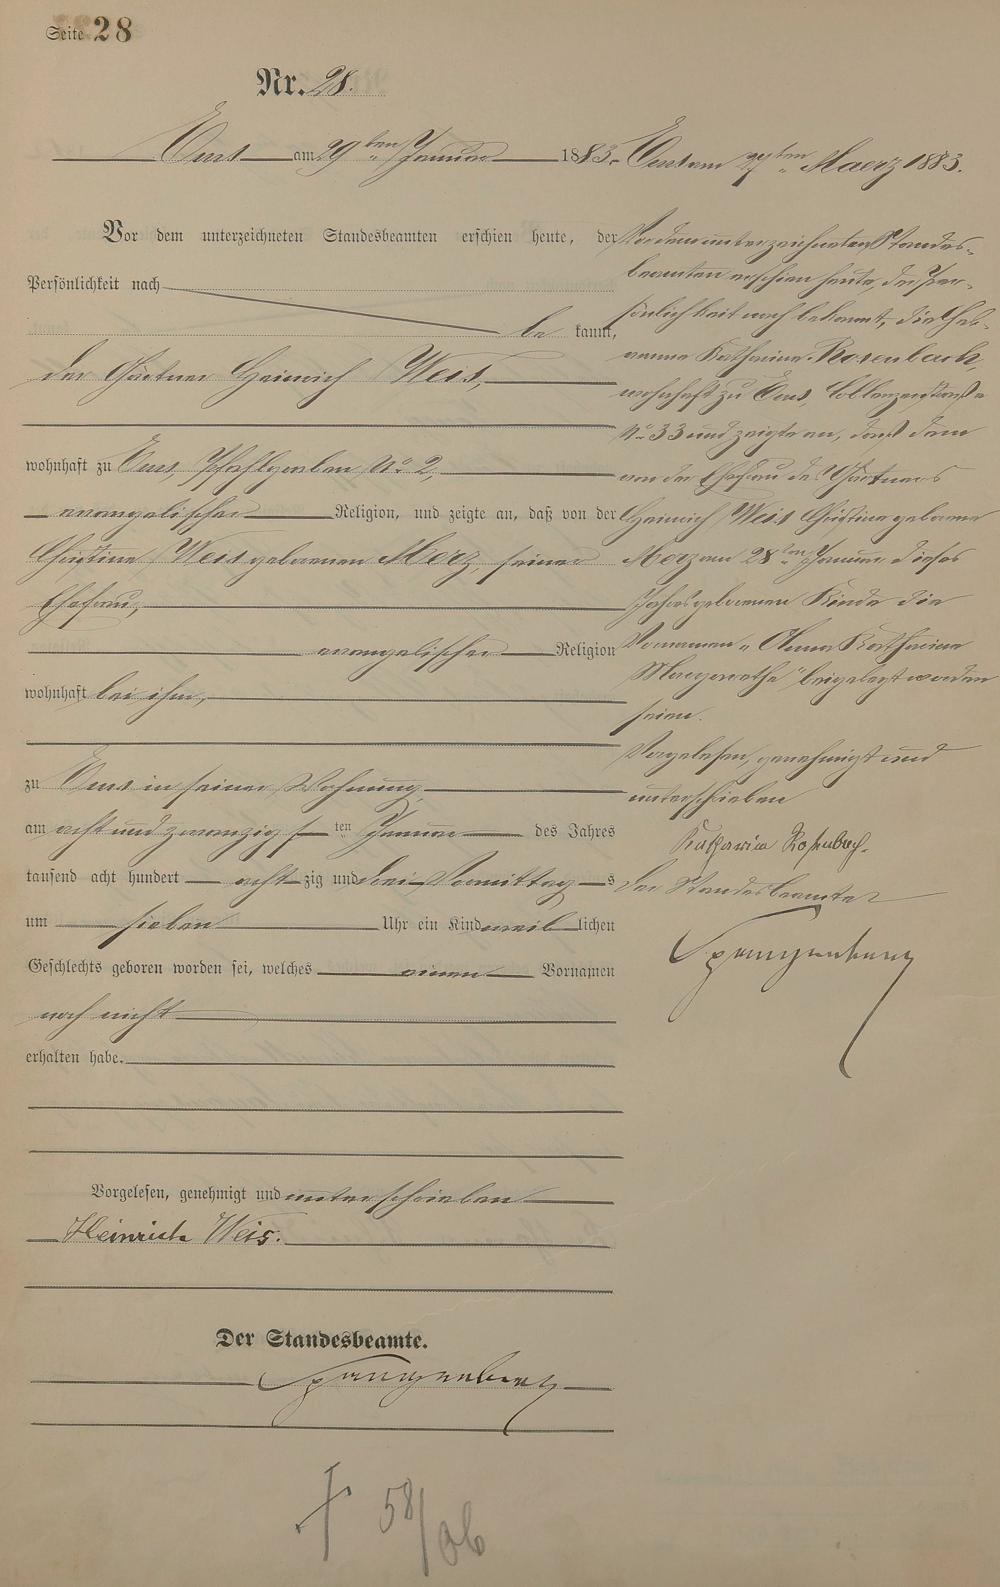 Seite 28
Nr. 28.
Ems am 29ten Januar 1883.
Vor dem unterzeichneten Standesbeamten erschien heute, der
Persönlichkeit nach
be kannt,
der Gärtner Heinrich Weis,
wohnhaft zu Ems, Pfahlgraben No 2,
evangelischer Religion, und zeigte an, daß von der
Christine Weis geborenen Merz, seiner
Ehefrau,
evangelischer Religion
wohnhaft bei ihm,
zu Ems in seiner Wohnung,
am acht und zwanzigs ten Januar des Jahres
tausend acht hundert acht zig und drei Vormittag s
um sieben Uhr ein Kind weib lichen
Geschlechts geboren worden sei, welches einen Vornamen
noch nicht
erhalten habe.
Vorgelesen, genehmigt und unterschrieben
Heinrich Weis.
Der Standesbeamte.
Spangenberg
† 58/06
Ems am 27ten Maerz 1883.
Vor dem unterzeichneten Standes-
beamten erschien heute, der Per-
sönlichkeit nach bekannt, die Heb-
amme Katharina Rosenbach,
wohnhaft zu Ems, Coblenzerstraße
No 33 und zeigte an, daß dem
von der Ehefrau des Gärtners
Heinrich Weis Christine geborene
Merz am 28ten Januar dieses
Jahres geborenen Kinde die
Vornamen „Anna Katharina
Margarethe" beigelegt worden
seien.
Vorgelesen, genehmigt und
unterschrieben
Katharina Rosenbach.
Der Standesbeamte
Spangenberg